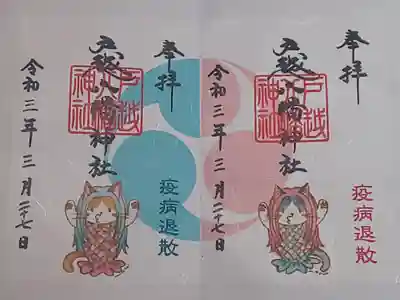 奉拝
戸越八幡神社
戸越
神社
疫病退散
令和三年三月二十七日
奉拝
戸越八幡神社
戸越
神社
疫病退散
令和三年三月二十七日